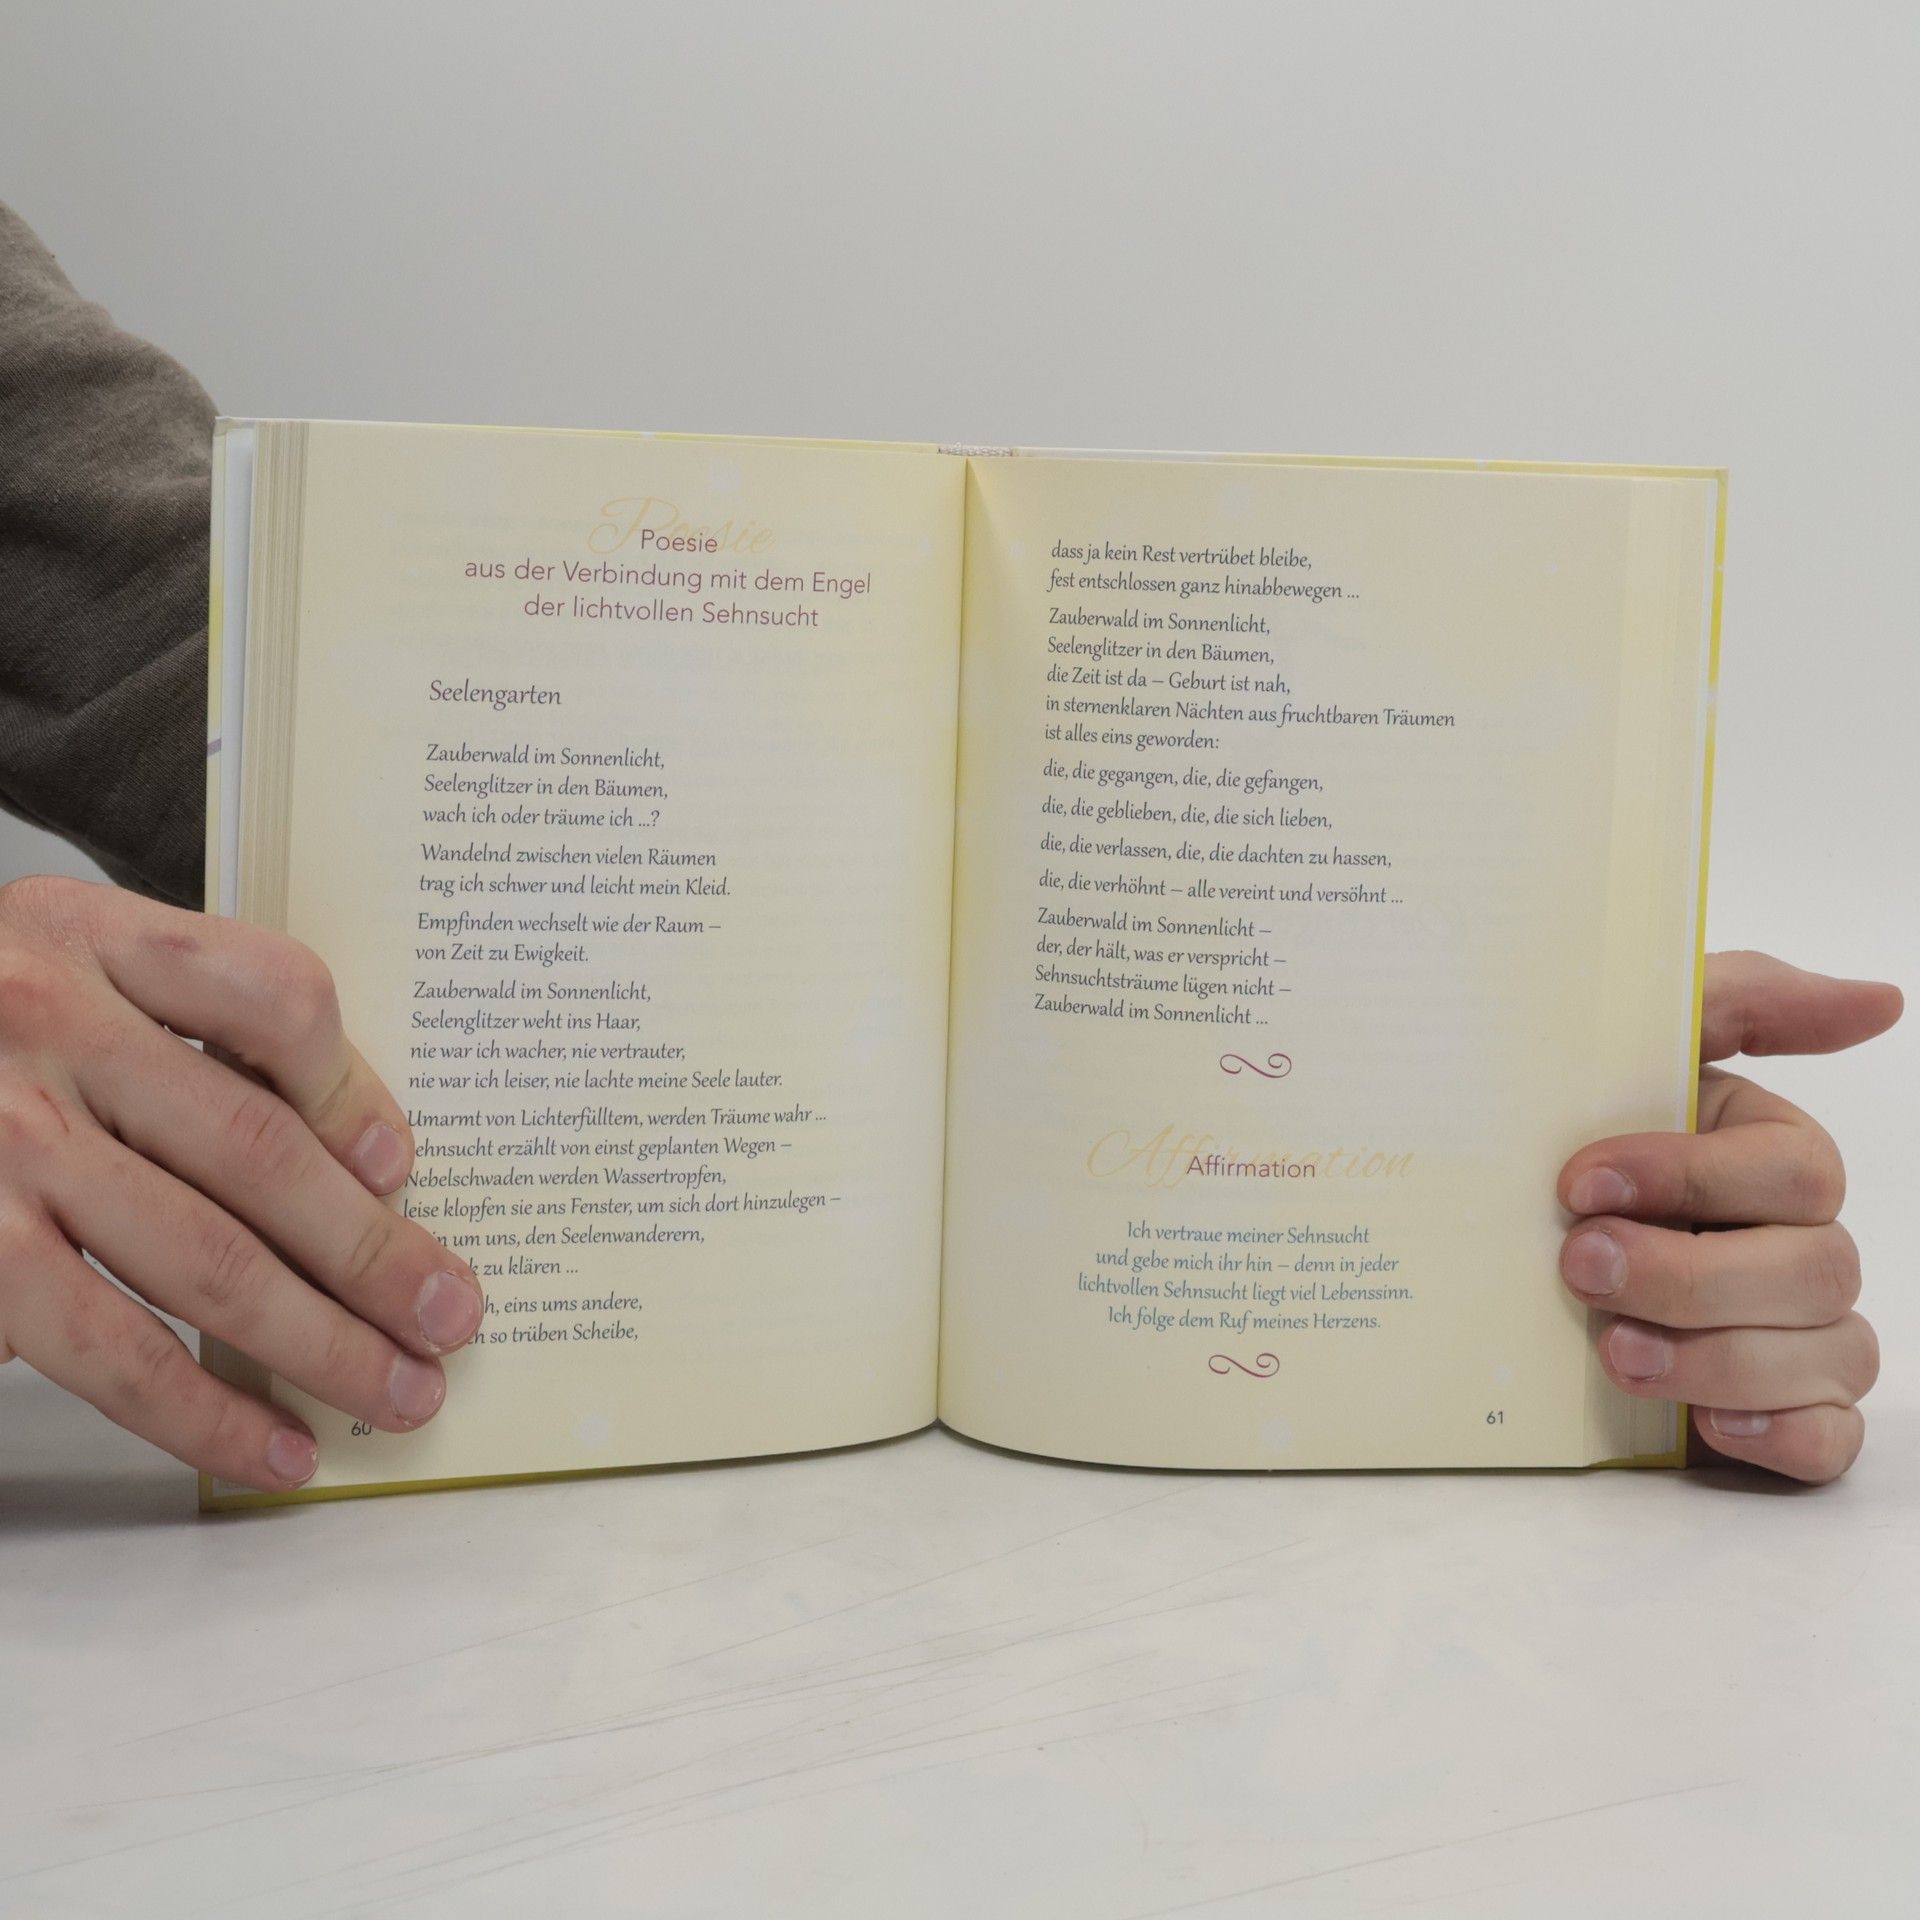 Poesie
Poesie
aus der Verbindung mit dem Engel
der lichtvollen Sehnsucht
Seelengarten
Zauberwald im Sonnenlicht,
Seelenglitzer in den Bäumen,
wach ich oder träume ich ...?
Wandelnd zwischen vielen Räumen
trag ich schwer und leicht mein Kleid.
Empfinden wechselt wie der Raum –
von Zeit zu Ewigkeit.
Zauberwald im Sonnenlicht,
Seelenglitzer weht ins Haar,
nie war ich wacher, nie vertrauter,
nie war ich leiser, nie lachte meine Seele lauter.
Umarmt von Lichterfülltem, werden Träume wahr ...
erzählt von einst geplanten Wegen –
Nebelschwaden werden Wassertropfen,
leise klopfen sie ans Fenster, um sich dort hinzulegen –
um uns, den Seelenwanderern,
zu klären ...
eins ums andere,
so trüben Scheibe,
60
dass ja kein Rest vertrübet bleibe,
fest entschlossen ganz hinabbewegen ...
Zauberwald im Sonnenlicht,
Seelenglitzer in den Bäumen,
die Zeit ist da – Geburt ist nah,
in sternenklaren Nächten aus fruchtbaren Träumen
ist alles eins geworden:
die, die gegangen, die, die gefangen,
die, die geblieben, die, die sich lieben,
die, die verlassen, die, die dachten zu hassen,
die, die verhöhnt – alle vereint und versöhnt ...
Zauberwald im Sonnenlicht –
der, der hält, was er verspricht –
Sehnsuchtsträume lügen nicht –
Zauberwald im Sonnenlicht ...
Affirmation
Affirmation
Ich vertraue meiner Sehnsucht
und gebe mich ihr hin – denn in jeder
lichtvollen Sehnsucht liegt viel Lebenssinn.
Ich folge dem Ruf meines Herzens.
61